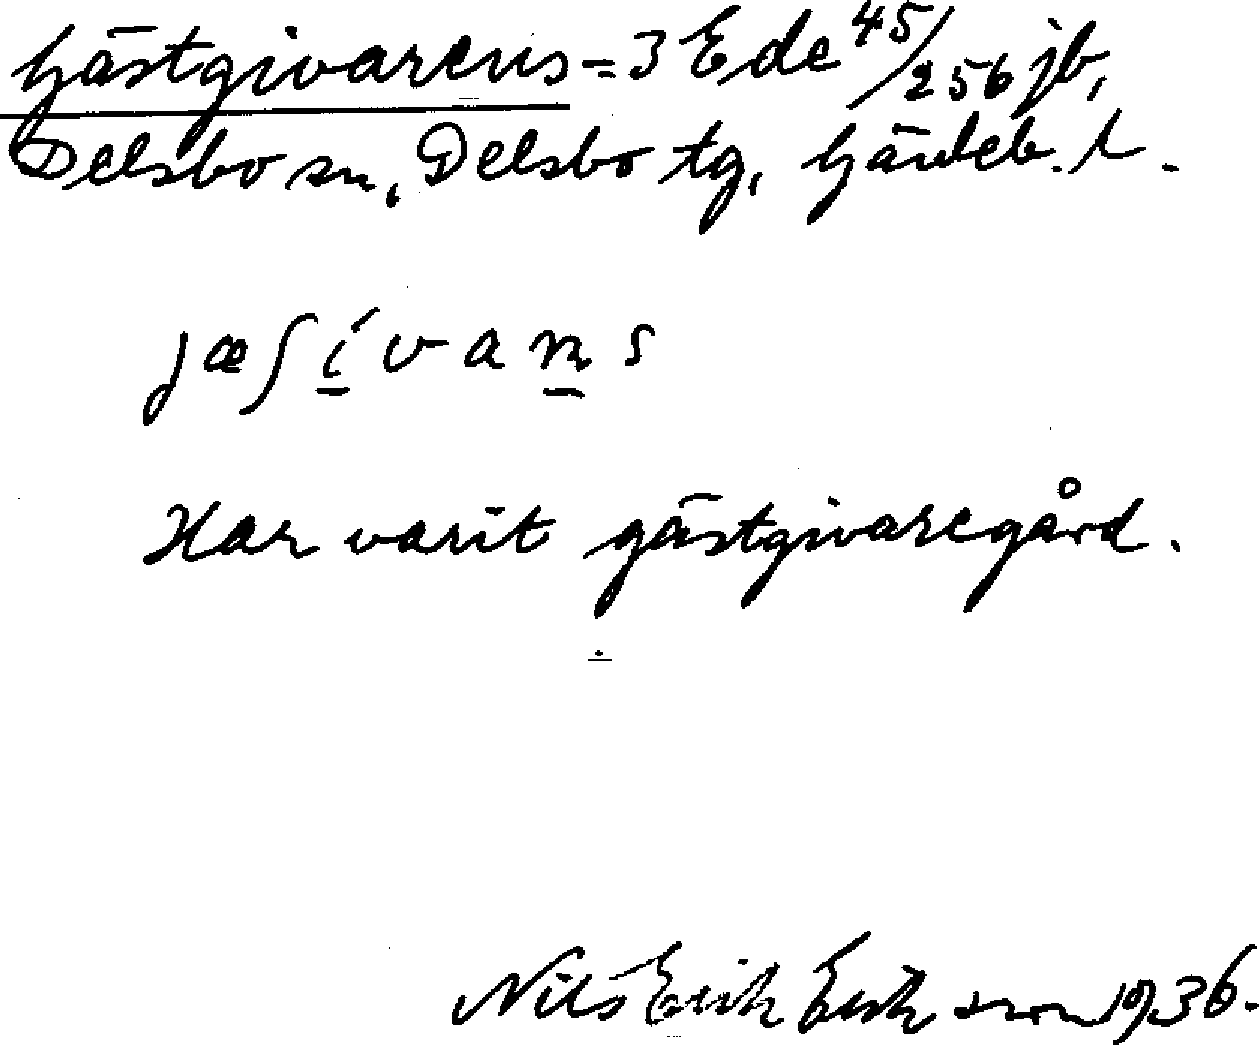 Gästgivarens = 3 Ede 45/256 jb,
Delsbo sn, Delsbo tg, Gävleb. l.
jæʃivans
Har varit gästgivaregård.
Nils Erik Eriksson 1936.